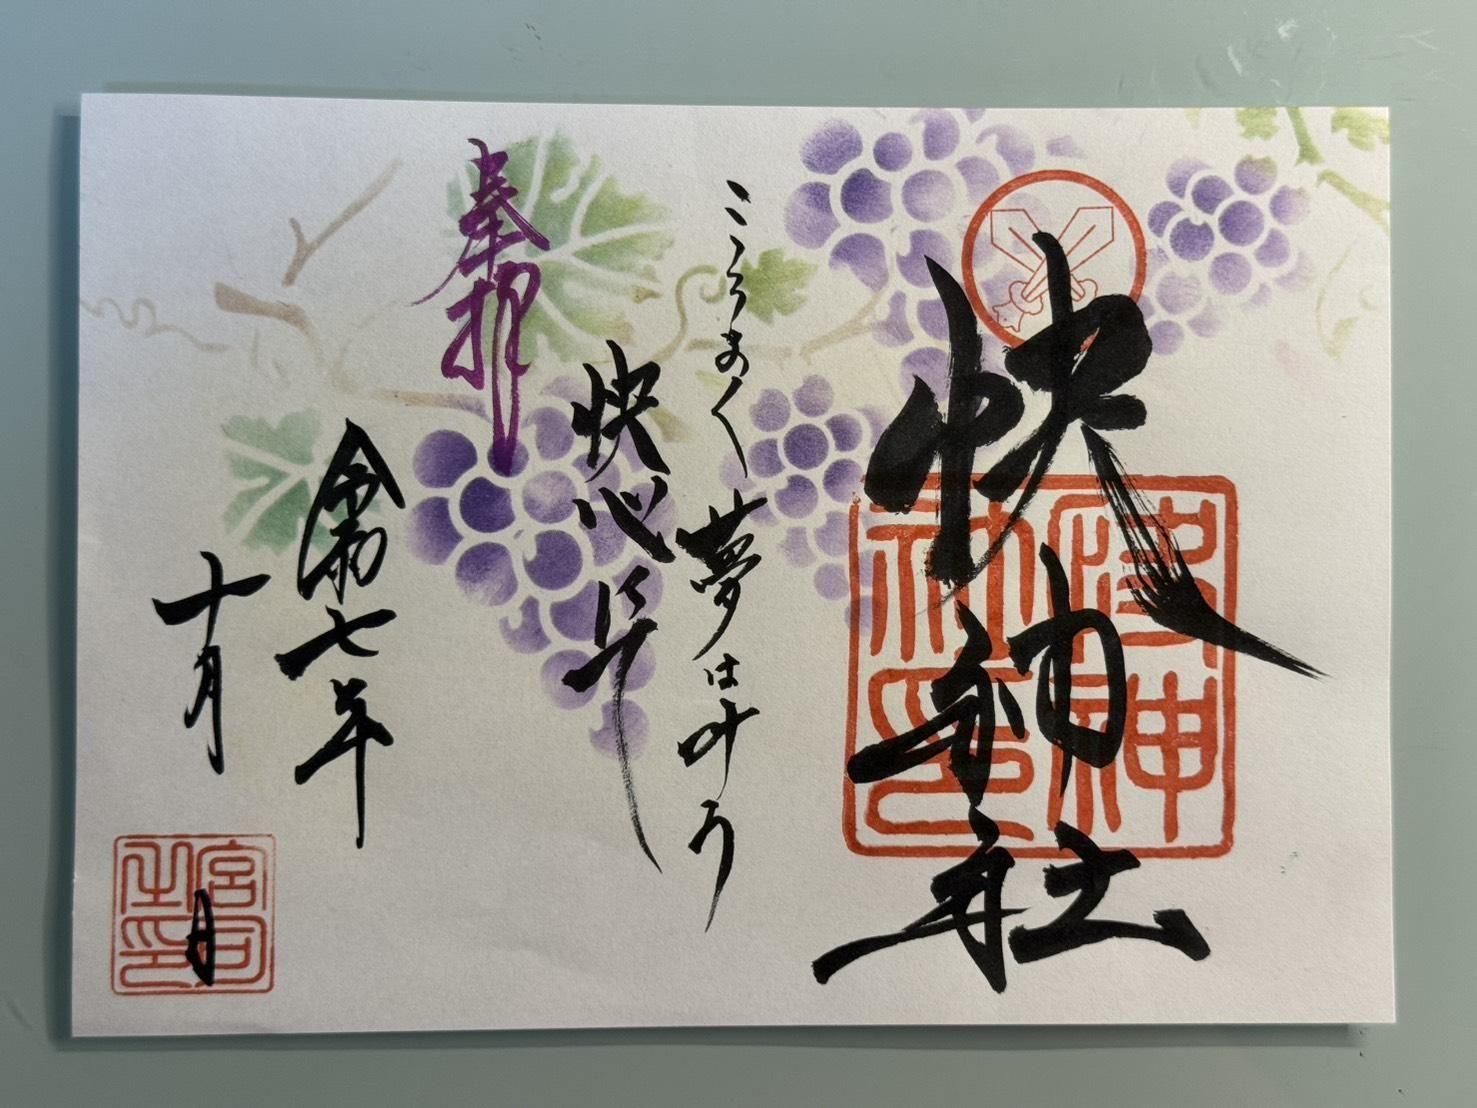 快神社
快神社印
こころよく 夢は叶う
快心にて
奉拝
令和七年
十月 日
宮司之印